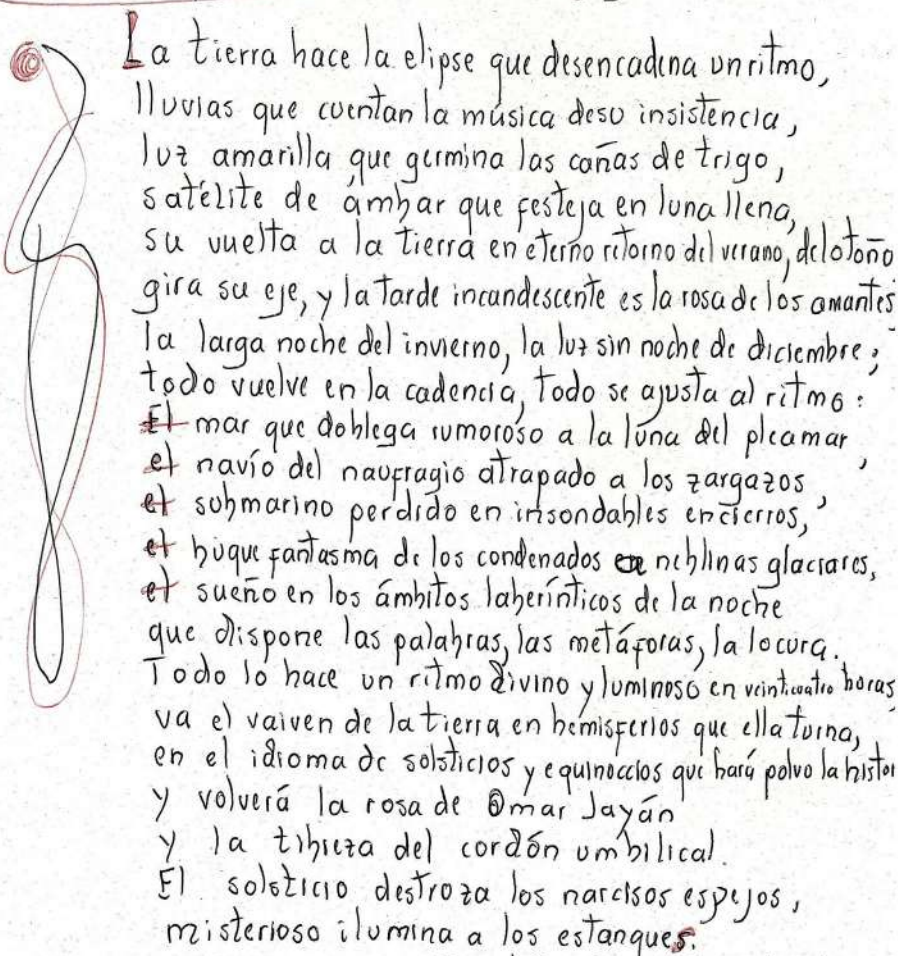 La tierra hace la elipse que desencadena un ritmo,
lluvias que cuentan la música de su insistencia,
luz amarilla que germina las cañas de trigo,
satélite de ámbar que festeja en luna llena,
su vuelta a la tierra en eterno retorno del verano, del otoño
gira su eje, y la tarde incandescente es la rosa de los amantes
la larga noche del invierno, la luz sin noche de diciembre;
todo vuelve en la cadencia, todo se ajusta al ritmo:
El mar que doblega rumoroso a la luna del pleamar,
el navío del naufragio atrapado a los zargazos,
el submarino perdido en insondables encierros,
el buque fantasma de los condenados en neblinas glaciares,
el sueño en los ámbitos laberínticos de la noche
que dispone las palabras, las metáforas, la locura.
Todo lo hace un ritmo divino y luminoso en veinticuatro horas
va el vaiven de la tierra en hemisferios que ella turna,
en el idioma de solsticios y equinoccios que hará polvo la histor
y volverá la rosa de Omar Jayán
y la tibieza del cordón umbilical.
El solsticio destroza los narcisos espejos,
misterioso ilumina a los estanques.